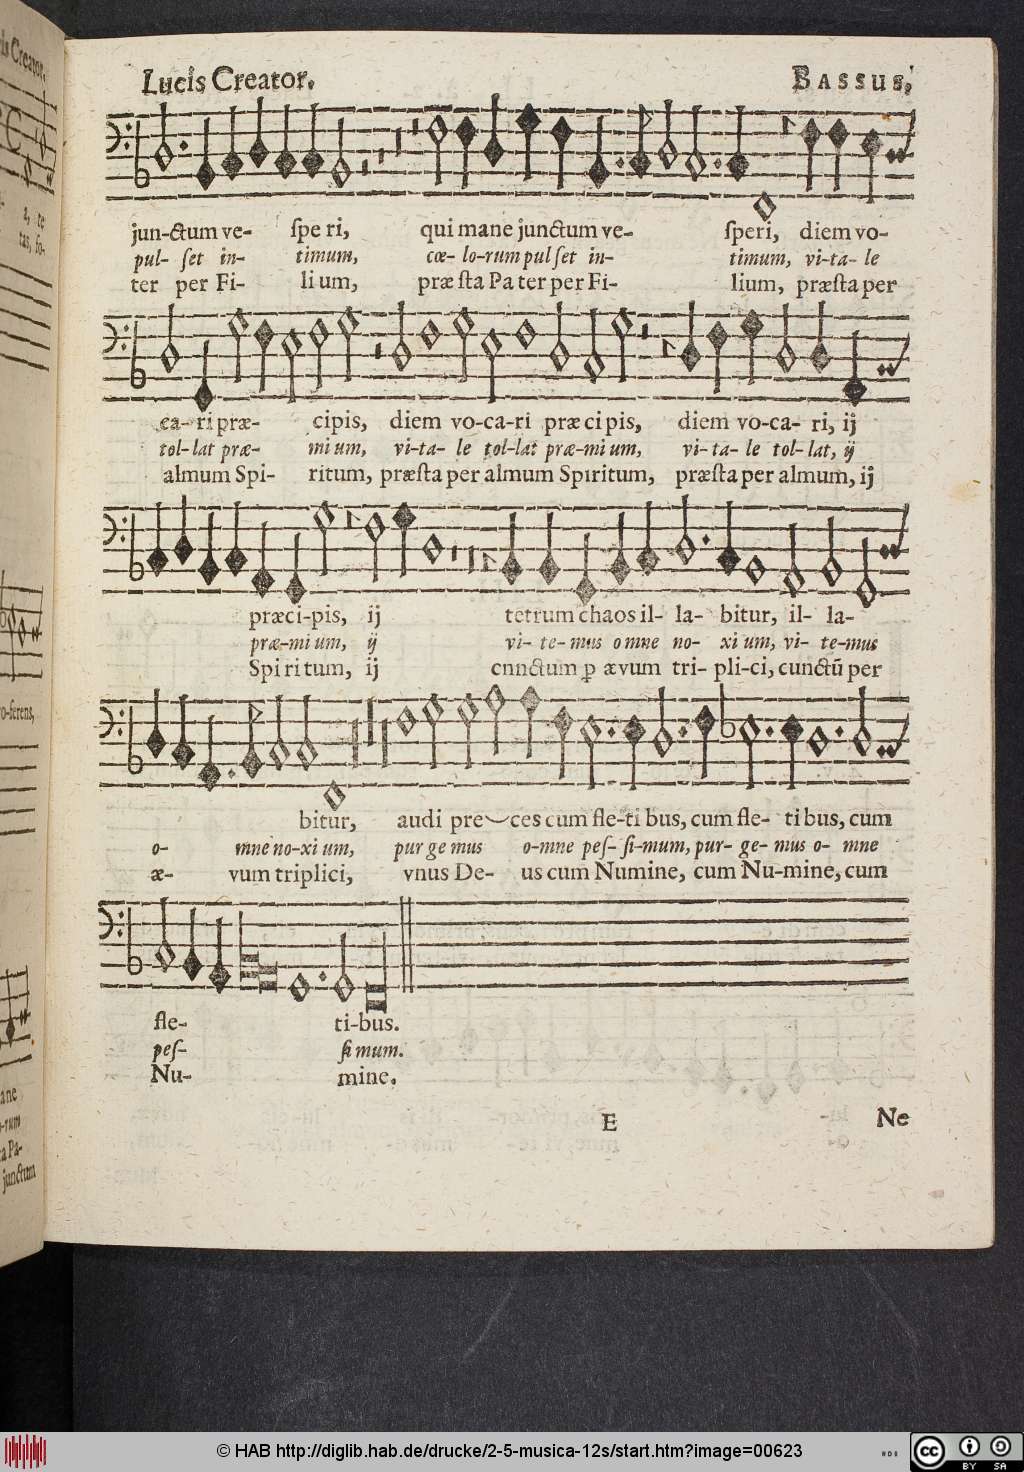 Lucis Creator.
BASSUS.
jun-ctum ve- spe ri, qui mane junctum ve- speri, diem vo-
pul- set in- timum, cœ- lo-rum pulset in- timum, vi-ta- le
ter per Fi- li um, præ sta Pa ter per Fi- lium, præsta per
ca- ri præ- cipis, diem vo-ca-ri præ ci pis, diem vo-ca- ri, ij
tol-lat præ- mi um, vi-ta- le tol-lat præ-mi um, vi-ta- le tol-lat, ij
almum Spi- ritum, præsta per almum Spiritum, præsta per almum, ij
præci-pis, ij tetrum chaos il- la- bitur, il- la-
præ-mi um, ij vi- te- mus omne no- xi um, vi- te-mus
Spi ri tum, ij cnnctum ꝑ ævum tri- pli-ci, cunctū per
bitur, audi pre-ces cum fle-ti bus, cum fle- ti bus, cum
o- mne no-xi um, pur ge mus o-mne pes- si-mum, pur- ge- mus o- mne
æ- vum triplici, vnus De- us cum Numine, cum Nu-mine, cum
fle- ti-bus.
pes- si mum.
Nu- mine.
E
Ne
is Creator.
a, te
tas, fo-
o-ferens,
ane
-rum
ta Pa-
junctum
© HAB http://diglib.hab.de/drucke/2-5-musica-12s/start.htm?image=00623
cc BY SA